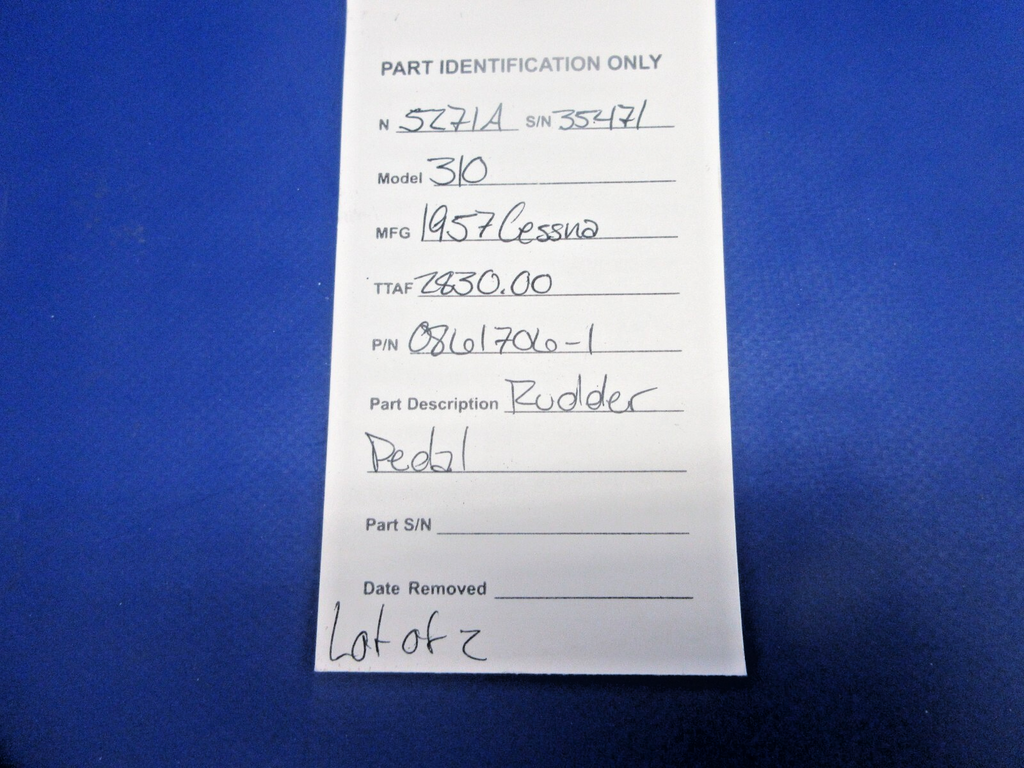 PART IDENTIFICATION ONLY
N 5271A S/N 35471
Model 310
MFG 1957 Cessna
TTAF 2830.00
P/N 0861706-1
Part Description Rudder
Pedal
Part S/N
Date Removed
Lot of 2